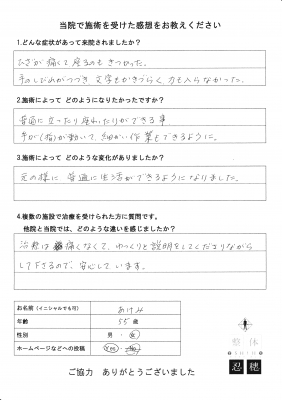 当院で施術を受けた感想をお教えください
1.どんな症状があって来院されましたか？
ひざが痛くて座るのもきつかった。
手のしびれがつづき文字もかきづらく、力も入らなかった。
2.施術によって どのようになりたかったですか？
普通に立ったり座れったりができる事
手が(指)が動いて、細かい作業をできるように。
3.施術によって どのような変化がありましたか？
元の様に 普通に生活ができるようになりました。
4.複数の施設で治療を受けられた方に質問です。
他院と当院では、どのような違いを感じましたか？
治療は痛くなくて、ゆっくりと説明をしてくださりながら
して下さるので、安心しています。
お名前（イニシャルでも可） あけみ
年齢 55 歳
性別 男 ・ 女
ホームページなどへの投稿 Yes ・ No
整体
忍穂
ご協力 ありがとうございました